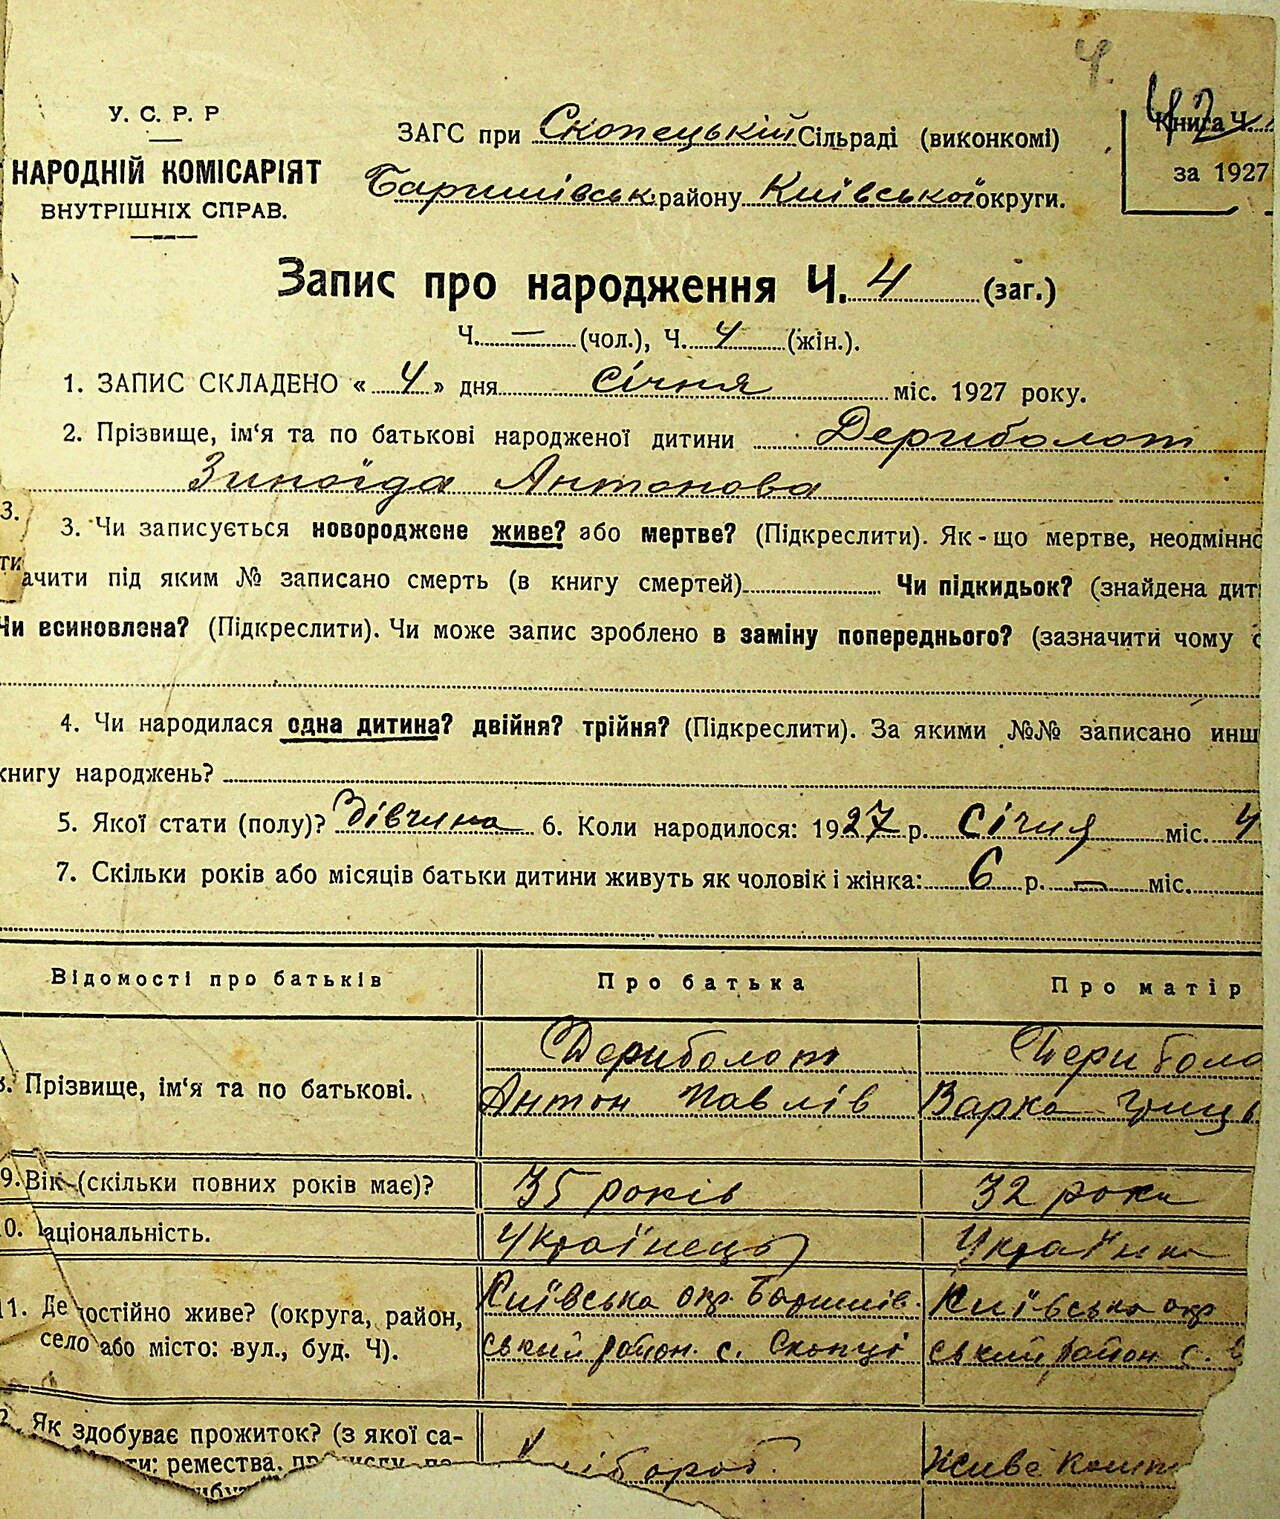 4.
У. С. Р. Р
НАРОДНІЙ КОМІСАРІЯТ
ВНУТРІШНІХ СПРАВ.
ЗАГС при Скопецькій Сільраді (виконкомі)
Баришівськ. району Київської округи.
42
Книга Ч.
за 1927
Запис про народження Ч. 4 (заг.)
Ч. — (чол.), Ч. 4 (жін.).
1. ЗАПИС СКЛАДЕНО « 4 » дня січня міс. 1927 року.
2. Прізвище, ім‘я та по батькові народженої дитини Дериболот
Зиноїда Антонова
3.
3. Чи записується новороджене живе? або мертве? (Підкреслити). Як-що мертве, неодмінно
ти
ачити під яким № записано смерть (в книгу смертей) Чи підкидьок? (знайдена дит
Чи всиновлена? (Підкреслити). Чи може запис зроблено в заміну попереднього? (зазначити чому с
4. Чи народилася одна дитина? двійня? трійня? (Підкреслити). За якими №№ записано инш
книгу народжень?
5. Якої стати (полу)? Дівчина 6. Коли народилося: 1927 р. Січня міс. 4
7. Скільки років або місяців батьки дитини живуть як чоловік і жінка: 6 р. — міс.
Відомості про батьків Про батька Про матір
8. Прізвище, ім‘я та по батькові. Дериболот Дериболо
Антон Павлів Варка Гриць
9. Вік (скільки повних років має)? 35 років 32 роки
0. аціональність. Українець Українка
11. Де постійно живе? (округа, район, Київська окр. Баришів- Київська окр
село або місто: вул., буд. Ч). ський район с. Скопці ський район с.
2. Як здобуває прожиток? (з якої са-
ти: ремества, хлібороб. живе